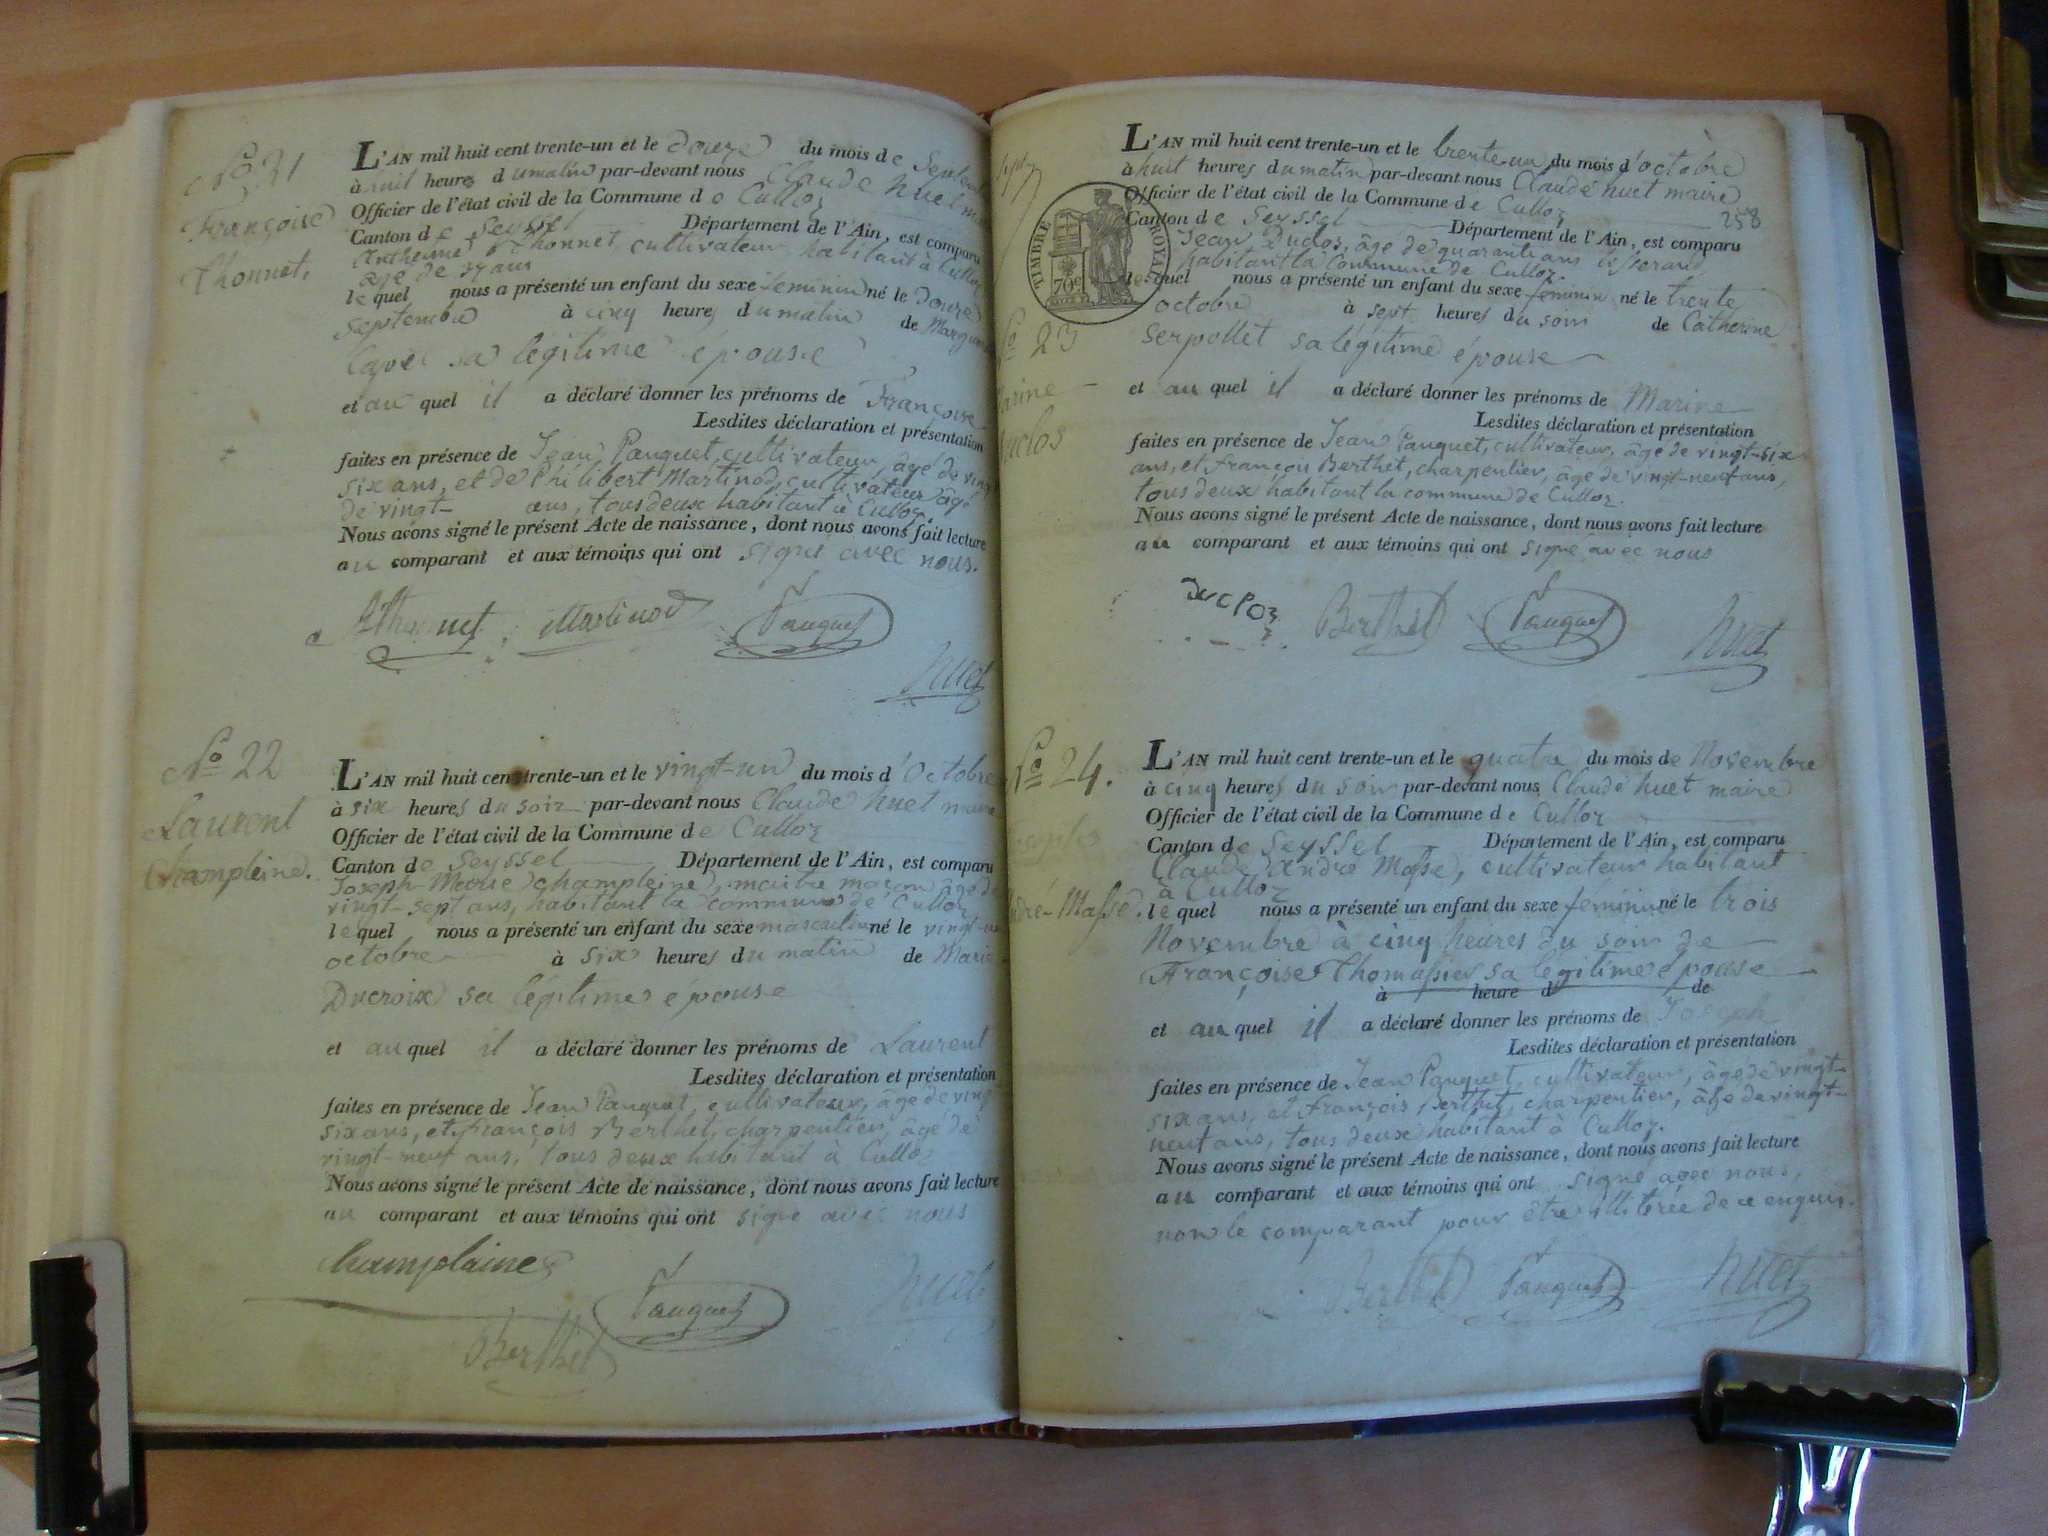 No 21
Françoise
Thonnet,
L'AN mil huit cent trente-un et le douze du mois de Septem
à huit heures du matin par-devant nous Claude Huet m
Officier de l'état civil de la Commune de Culloz
Canton de Seyssel Département de l'Ain, est comparu
Anthelme Thonnet, cultivateur habitant à Culloz
âge de ans
lequel nous a présenté un enfant du sexe féminin né le douze
Septembre à cinq heures du matin de Margue
sa légitime épouse
et au quel il a déclaré donner les prénoms de Françoise
Lesdites déclaration et présentation
faites en présence de Jean Pauquet, cultivateur, âgé de vingt
six ans, et de Philibert Martinod, cultivateur âgé
de vingt- ans, tous deux habitant à Culloz.
Nous avons signé le présent Acte de naissance, dont nous avons fait lecture
au comparant et aux témoins qui ont signé avec nous.
Thonnet Martinod Pauquet
Huet
No 22
Laurent
Champleine.
L'AN mil huit cent trente-un et le vingt-un du mois d'Octobre
à six heures du soir par-devant nous Claude Huet maire
Officier de l'état civil de la Commune de Culloz
Canton de Seyssel Département de l'Ain, est comparu
Joseph Marie Champleine, maitre maçon âgé de
vingt-sept ans, habitant la commune de Culloz
lequel nous a présenté un enfant du sexe masculin né le vingt-un
octobre à six heures du matin de Marie
Ducroix sa légitime épouse
et au quel il a déclaré donner les prénoms de Laurent
Lesdites déclaration et présentation
faites en présence de Jean Pauquet, cultivateur, âgé de vingt
six ans, et François Berthet, charpentier, âgé de
vingt-neuf ans, tous deux habitant à Culloz
Nous avons signé le présent Acte de naissance, dont nous avons fait lecture
au comparant et aux témoins qui ont signé avec nous
Champlaine
Pauquet Huet
Berthet
TIMBRE ROYAL
70c
258
No 23
Marine
Duclos
L'AN mil huit cent trente-un et le trente-un du mois d'octobre
à huit heures du matin par-devant nous Claude huet maire
Officier de l'état civil de la Commune de Culloz
Canton de Seyssel Département de l'Ain, est comparu
Jean Duclos, âge de quarante ans tisserand
habitant la Commune de Culloz.
lequel nous a présenté un enfant du sexe féminin né le trente
octobre à sept heures du soir de Catherine
Serpollet sa légitime épouse
et au quel il a déclaré donner les prénoms de Marine
Lesdites déclaration et présentation
faites en présence de Jean Pauquet, cultivateur, âge de vingt-six
ans, et François Berthet, charpentier, âge de vingt-neuf ans,
tous deux habitant la commune de Culloz.
Nous avons signé le présent Acte de naissance, dont nous avons fait lecture
au comparant et aux témoins qui ont signé avec nous
Ducloz Berthet Pauquet
Huet
No 24.
Joseph
André-Masse.
L'AN mil huit cent trente-un et le quatre du mois de Novembre
à cinq heures du soir par-devant nous Claude huet maire
Officier de l'état civil de la Commune de Culloz
Canton de Seyssel Département de l'Ain, est comparu
Claude André Masse, cultivateur habitant
à Culloz
lequel nous a présenté un enfant du sexe féminin né le trois
Novembre à cinq heures du soir de
Françoise Thomassier sa légitime épouse
à heure d de
et au quel il a déclaré donner les prénoms de Joseph
Lesdites déclaration et présentation
faites en présence de Jean Pauquet, cultivateur, âge de vingt-
six ans, et François Berthet, charpentier, âge de vingt-
neuf ans, tous deux habitant à Culloz.
Nous avons signé le présent Acte de naissance, dont nous avons fait lecture
au comparant et aux témoins qui ont signé avec nous,
non le comparant pour être illitérée de ce enquis.
Berthet Pauquet Huet